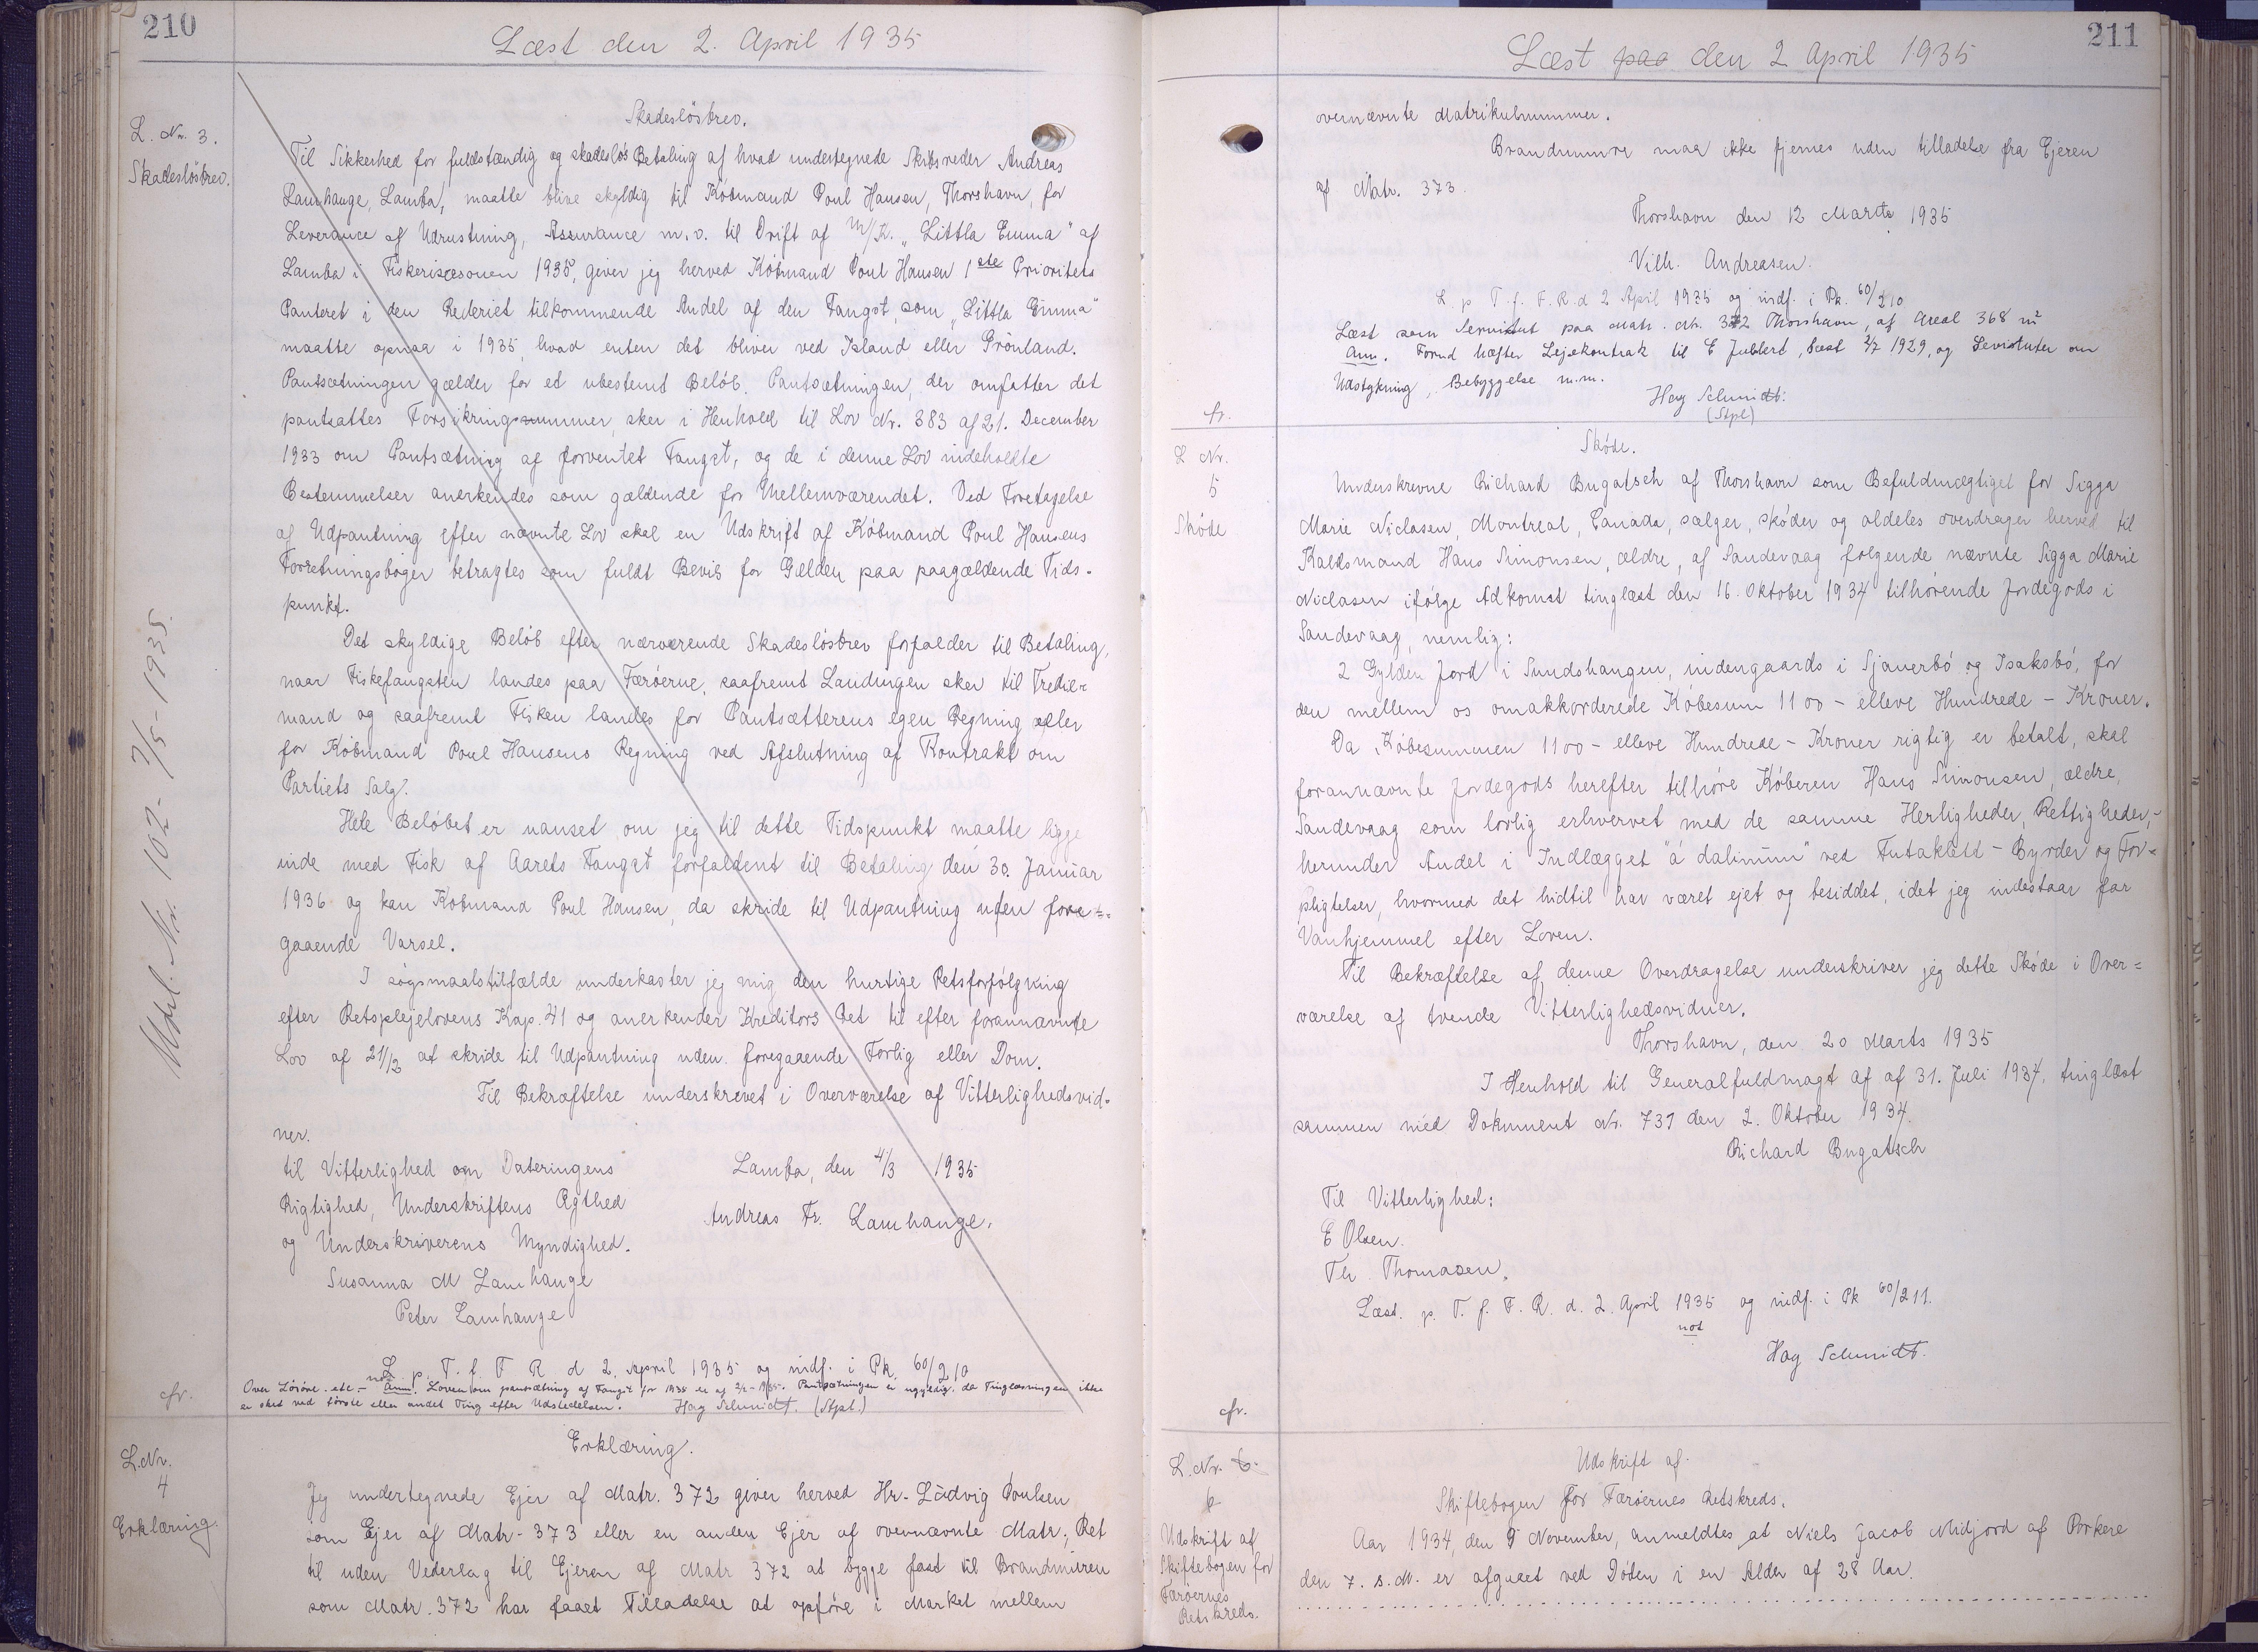 210
Læst den 2. April 1935
L. Nr. 3.
Skadesløsbrev.
Udsl. Nr. 102 - 7/5-1935.
Skadesløsbrev.
Til Sikkerhed for fuldstændig og skadesløs Betaling af hvad undertegnede Skibsreder Andreas
Lamhauge, Lamba, maatte blive skyldig til Købmand Poul Hansen, Thorshavn, for
Leverance af Udrustning, Assurance m.v. til Drift af M/K. „Littla Emma" af
Lamba i Fiskerisæsonen 1935, giver jeg herved Købmand Poul Hansen 1ste Prioritets
Panteret i den Rederiet tilkommende Andel af den Fangst, som „Littla Emma"
maatte opnaa i 1935, hvad enten det bliver ved Island eller Grønland.
Pantsætningen gælder for et ubestemt Beløb. Pantsætningen, der omfatter det
pantsattes Forsikringssummer, sker i Henhold til Lov Nr. 383 af 21. December
1933 om Pantsætning af forventet Fangst, og de i denne Lov indeholdte
Bestemmelser anerkendes som gældende for Mellemværendet. Ved Foretagelse
af Udpantning efter nævnte Lov skal en Udskrift af Købmand Poul Hansens
Forretningsbøger betragtes som fuldt Bevis for Gælden paa paagældende Tids-
punkt.
Det skyldige Beløb efter nærværende Skadesløsbrev forfalder til Betaling,
naar Fiskefangsten landes paa Færøerne, saafremt Landingen sker til Tredie-
mand og saafremt Fisken landes for Pantsætterens egen Regning eller
for Købmand Poul Hansens Regning ved Afslutning af Kontrakt om
Partiets Salg.
Hele Beløbet er uanset om jeg til dette Tidspunkt maatte ligge
inde med Fisk af Aarets Fangst forfaldent til Betaling den 30. Januar
1936 og kan Købmand Poul Hansen, da skride til Udpantning uden fore=
gaaende Varsel.
I søgsmaalstilfælde underkaster jeg mig den hurtige Retsforfølgning
efter Retsplejelovens Kap. 41 og anerkender Kreditors Ret til efter forannævnte
Lov af 21/12 at skride til Udpantning uden foregaaende Forlig eller Dom.
Til Bekræftelse underskrevet i Overværelse af Vitterlighedsvid-
ner.
til Vitterlighed om Dateringens
Lamba, den 4/3 1935
Rigtighed, Underskriftens Ægthed
Andreas Fr. Lamhauge.
og Underskriverens Myndighed.
Susanna M Lamhauge
Peter Lamhauge
L. p. T. f. F R d 2. April 1935 og indf. i Pk. 60/210
cfr.
Over Løsøre. etc. Anm. Loven om pansætning af Fangst for 1935 er af 2/2-1935. Pantsætningen er ugyldig, da Tinglæsningen ikke
er sket ved første eller andet Ting efter Udstedelsen. Hag Schmidt. (Stpl.)
L. Nr.
4
Erklæring.
Erklæring.
Jeg undertegnede Ejer af Matr. 372 giver herved Hr. Ludvig Poulsen
som Ejer af Matr- 373 eller en anden Ejer af overnævnte Matr; Ret
til uden Vederlag til Ejeren af Matr 372 at bygge fast til Brandmuren
som Matr. 372 har faaet Tilladelse at opføre i Market mellem
211
Læst paa den 2 April 1935
overnævnte Matrikulnummer.
Brandmure maa ikke fjernes uden tilladelse fra Ejeren
af Matr. 373.
Thorshavn den 12 Marts 1935
Vilh. Andreasen.
L. p T. f. F. R. d 2 April 1935 og indf. i Pk. 60/210
Læst som Servitut paa Matr. Nr. 372 Thorshavn, af Areal 368 m²
Anm. Forud hæfter Lejekontrak til E Jubbert, Læst 2/7 1929, og Sevituter om
Udstykning, Bebyggelse m.m.
Hag Schmidt.
(Stpl)
fr.
L Nr.
5
Skøde
Skøde.
Underskrevne Richard Bugatsch af Thorshavn som Befuldmægtiget for Sigga
Marie Niclasen, Montreal, Canada, sælger, skøder og aldeles overdrager herved til
Kaldsmand Hans Simonsen, ældre, af Sandevaag følgende nævnte Sigga Marie
Niclasen ifølge Adkomst tinglæst den 16. Oktober 1934 tilhørende Jordegods i
Sandevaag, nemlig:
2 Gylden Jord i Sundshangen, indengaards i Sjanerbø og Isaksbø, for
den mellem os omakkorderede Købesum 1100 - elleve Hundrede - Kroner.
Da Købesummen 1100 - elleve Hundrede - Kroner rigtig er betalt, skal
forannævnte Jordegods herefter tilhøre Køberen Hans Simonsen, ældre,
Sandevaag som lovlig erhvervet med de samme Herligheder, Rettigheder,-
herunder Andel i Indlægget "á dalinum" ved Futaklett - Byrder og For=
pligtelser, hvormed det hidtil har været ejet og besiddet, idet jeg indestaar for
Vanhjemmel efter Loven.
Til Bekræftelse af denne Overdragelse underskriver jeg dette Skøde i Over=
værelse af tvende Vitterlighedsvidner.
Thorshavn, den 20 Marts 1935
I Henhold til Generalfuldmagt af af 31. Juli 1934, tinglæst
sammen med Dokument Nr. 731 den 2. Oktober 1934.
Richard Bugatsch
Til Vitterlighed:
E Olsen.
Th. Thomasen.
Læst. p. T. f. F. R. d. 2. April 1935 og indf. i Pk 60/211.
not
Hag Schmidt.
cfr.
L. Nr. 6.
6
Udskrift af
Skiftebogen for
Færøernes
Retskreds.
Udskrift af
Skiftebogen for Færøernes Retskreds.
Aar 1934, den 9 November, anmeldtes, at Niels Jacob Midjord af Porkere
den 7. s.M. er afgaaet ved Døden i en Alder af 28 Aar.